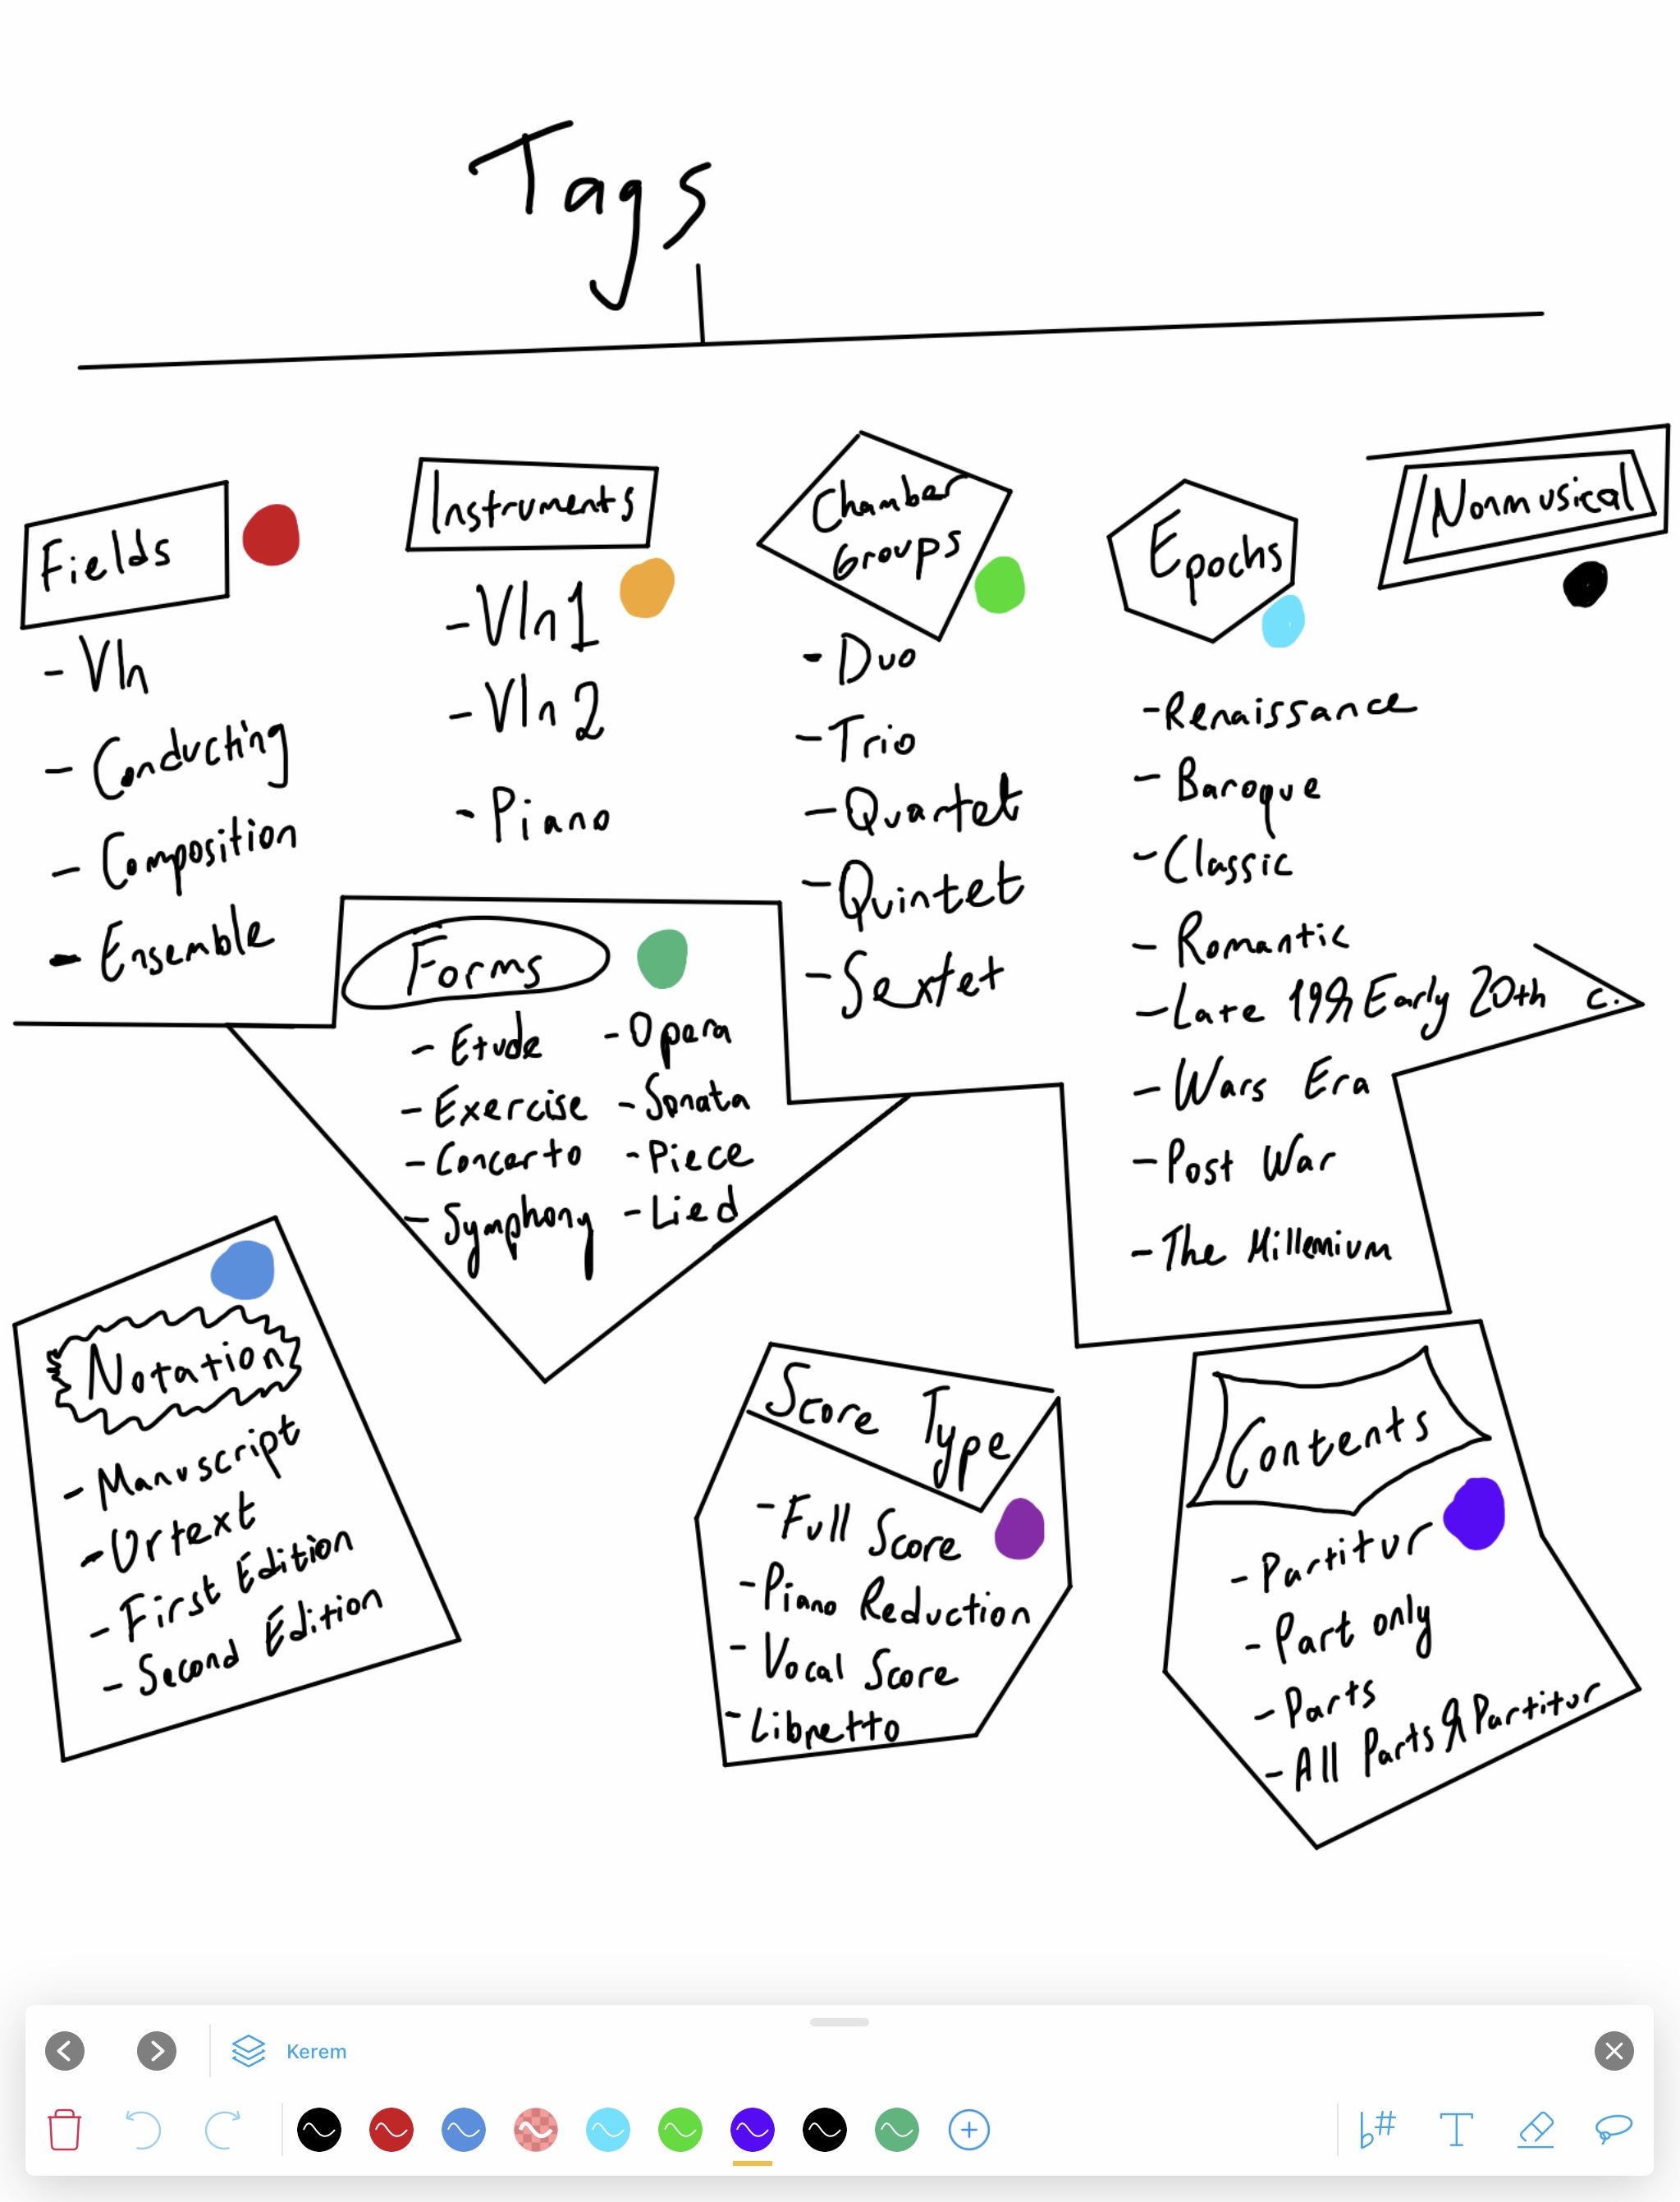 Tags
Fields
- Vln
- Conducting
- Composition
- Ensemble
Instruments
- Vln1
- Vln2
- Piano
Chamber
Groups
- Duo
- Trio
- Quartet
- Quintet
- Sextet
Epochs
- Renaissance
- Baroque
- Classic
- Romantic
- Late 19& Early 20th c.
- Wars Era
- Post War
- The Millemium
Nonmusical
Forms
- Etude
- Exercise
- Concerto
- Symphony
- Opera
- Sonata
- Piece
- Lied
Notation
- Manuscript
- Urtext
- First Edition
- Second Edition
Score Type
- Full Score
- Piano Reduction
- Vocal Score
- Libretto
Contents
- Partitur
- Part only
- Parts
- All Parts & Partitur
Kerem